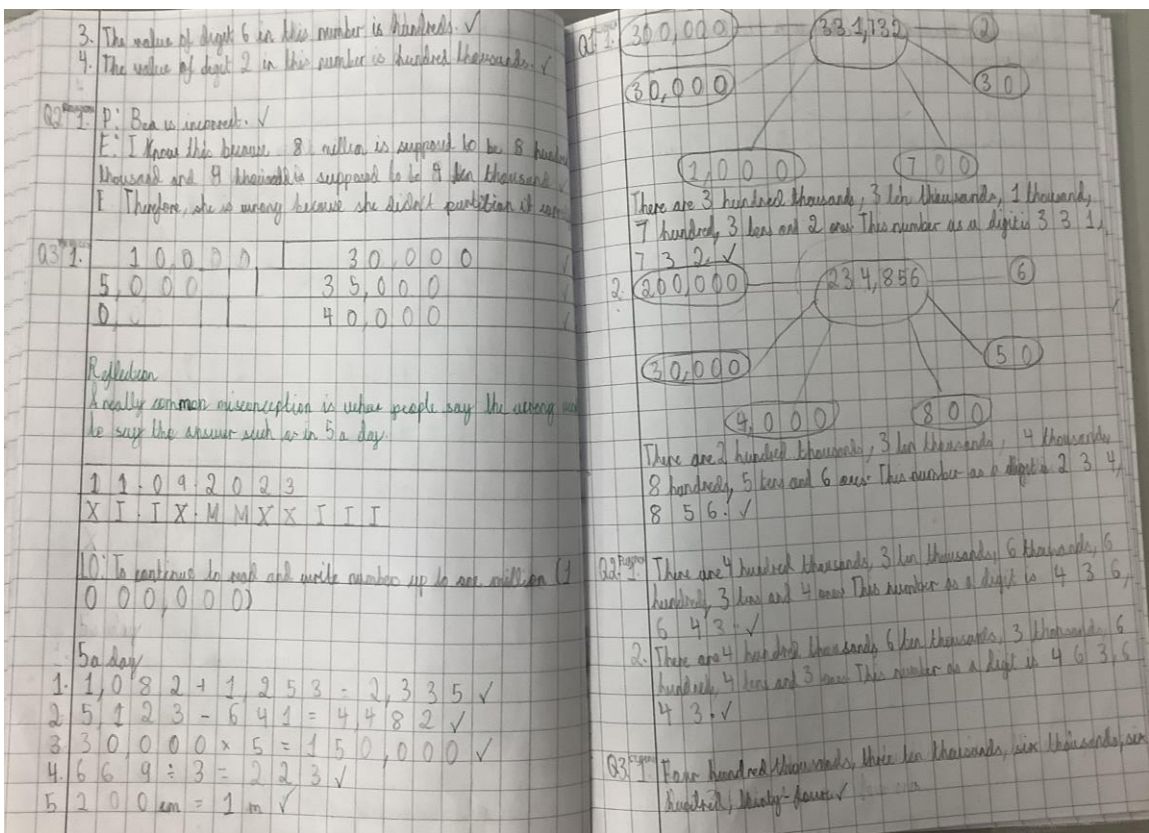 3. The value of digit 6 in this number is hundreds. ✓
4. The value of digit 2 in this number is hundred thousands. ✓
Q2 1. P: Bea is incorrect. ✓
E: I know this because 8 million is supposed to be 8 hundred
thousand and 9 thousand is supposed to be 9 ten thousand
E Therefore, she is wrong because she didn't partition it
Q3 1. 10,000 30,000
5,000 35,000
0 40,000
Reflection
A really common misconception is when people say the wrong
to say the answer such as in 5 a day.
11.09.2023
XI.IX.MMXXIII
LO: To continue to read and write number up to one million (1
000,000)
5 a day
1. 1,082 + 1,253 = 2,335 ✓
2 5,123 - 641 = 4482 ✓
3. 30,000 × 5 = 150,000 ✓
4. 669 ÷ 3 = 223 ✓
5 200cm = 1m ✓
Q1 1. 300,000 331,732 2
30,000 30
1,000 700
There are 3 hundred thousands, 3 ten thousands, 1 thousand,
7 hundred, 3 tens and 2 ones. This number as a digit is 331,
732. ✓
2. 200,000 234,856 6
30,000 50
4,000 800
There are 2 hundred thousands, 3 ten thousands, 4 thousands
8 hundreds, 5 tens and 6 ones. This number as a digit is 234,
856. ✓
Q2. 1. There are 4 hundred thousands, 3 ten thousands, 6 thousands, 6
hundred, 3 tens and 4 ones This number as a digit is 436,
643. ✓
2. There are 4 hundred thousands, 6 ten thousands, 3 thousands, 6
hundreds, 4 tens and 3 ones This number as a digit is 463,6
43. ✓
Q3 1. Four hundred thousands, three ten thousands, six thousands, six
hundred, thirty-four. ✓